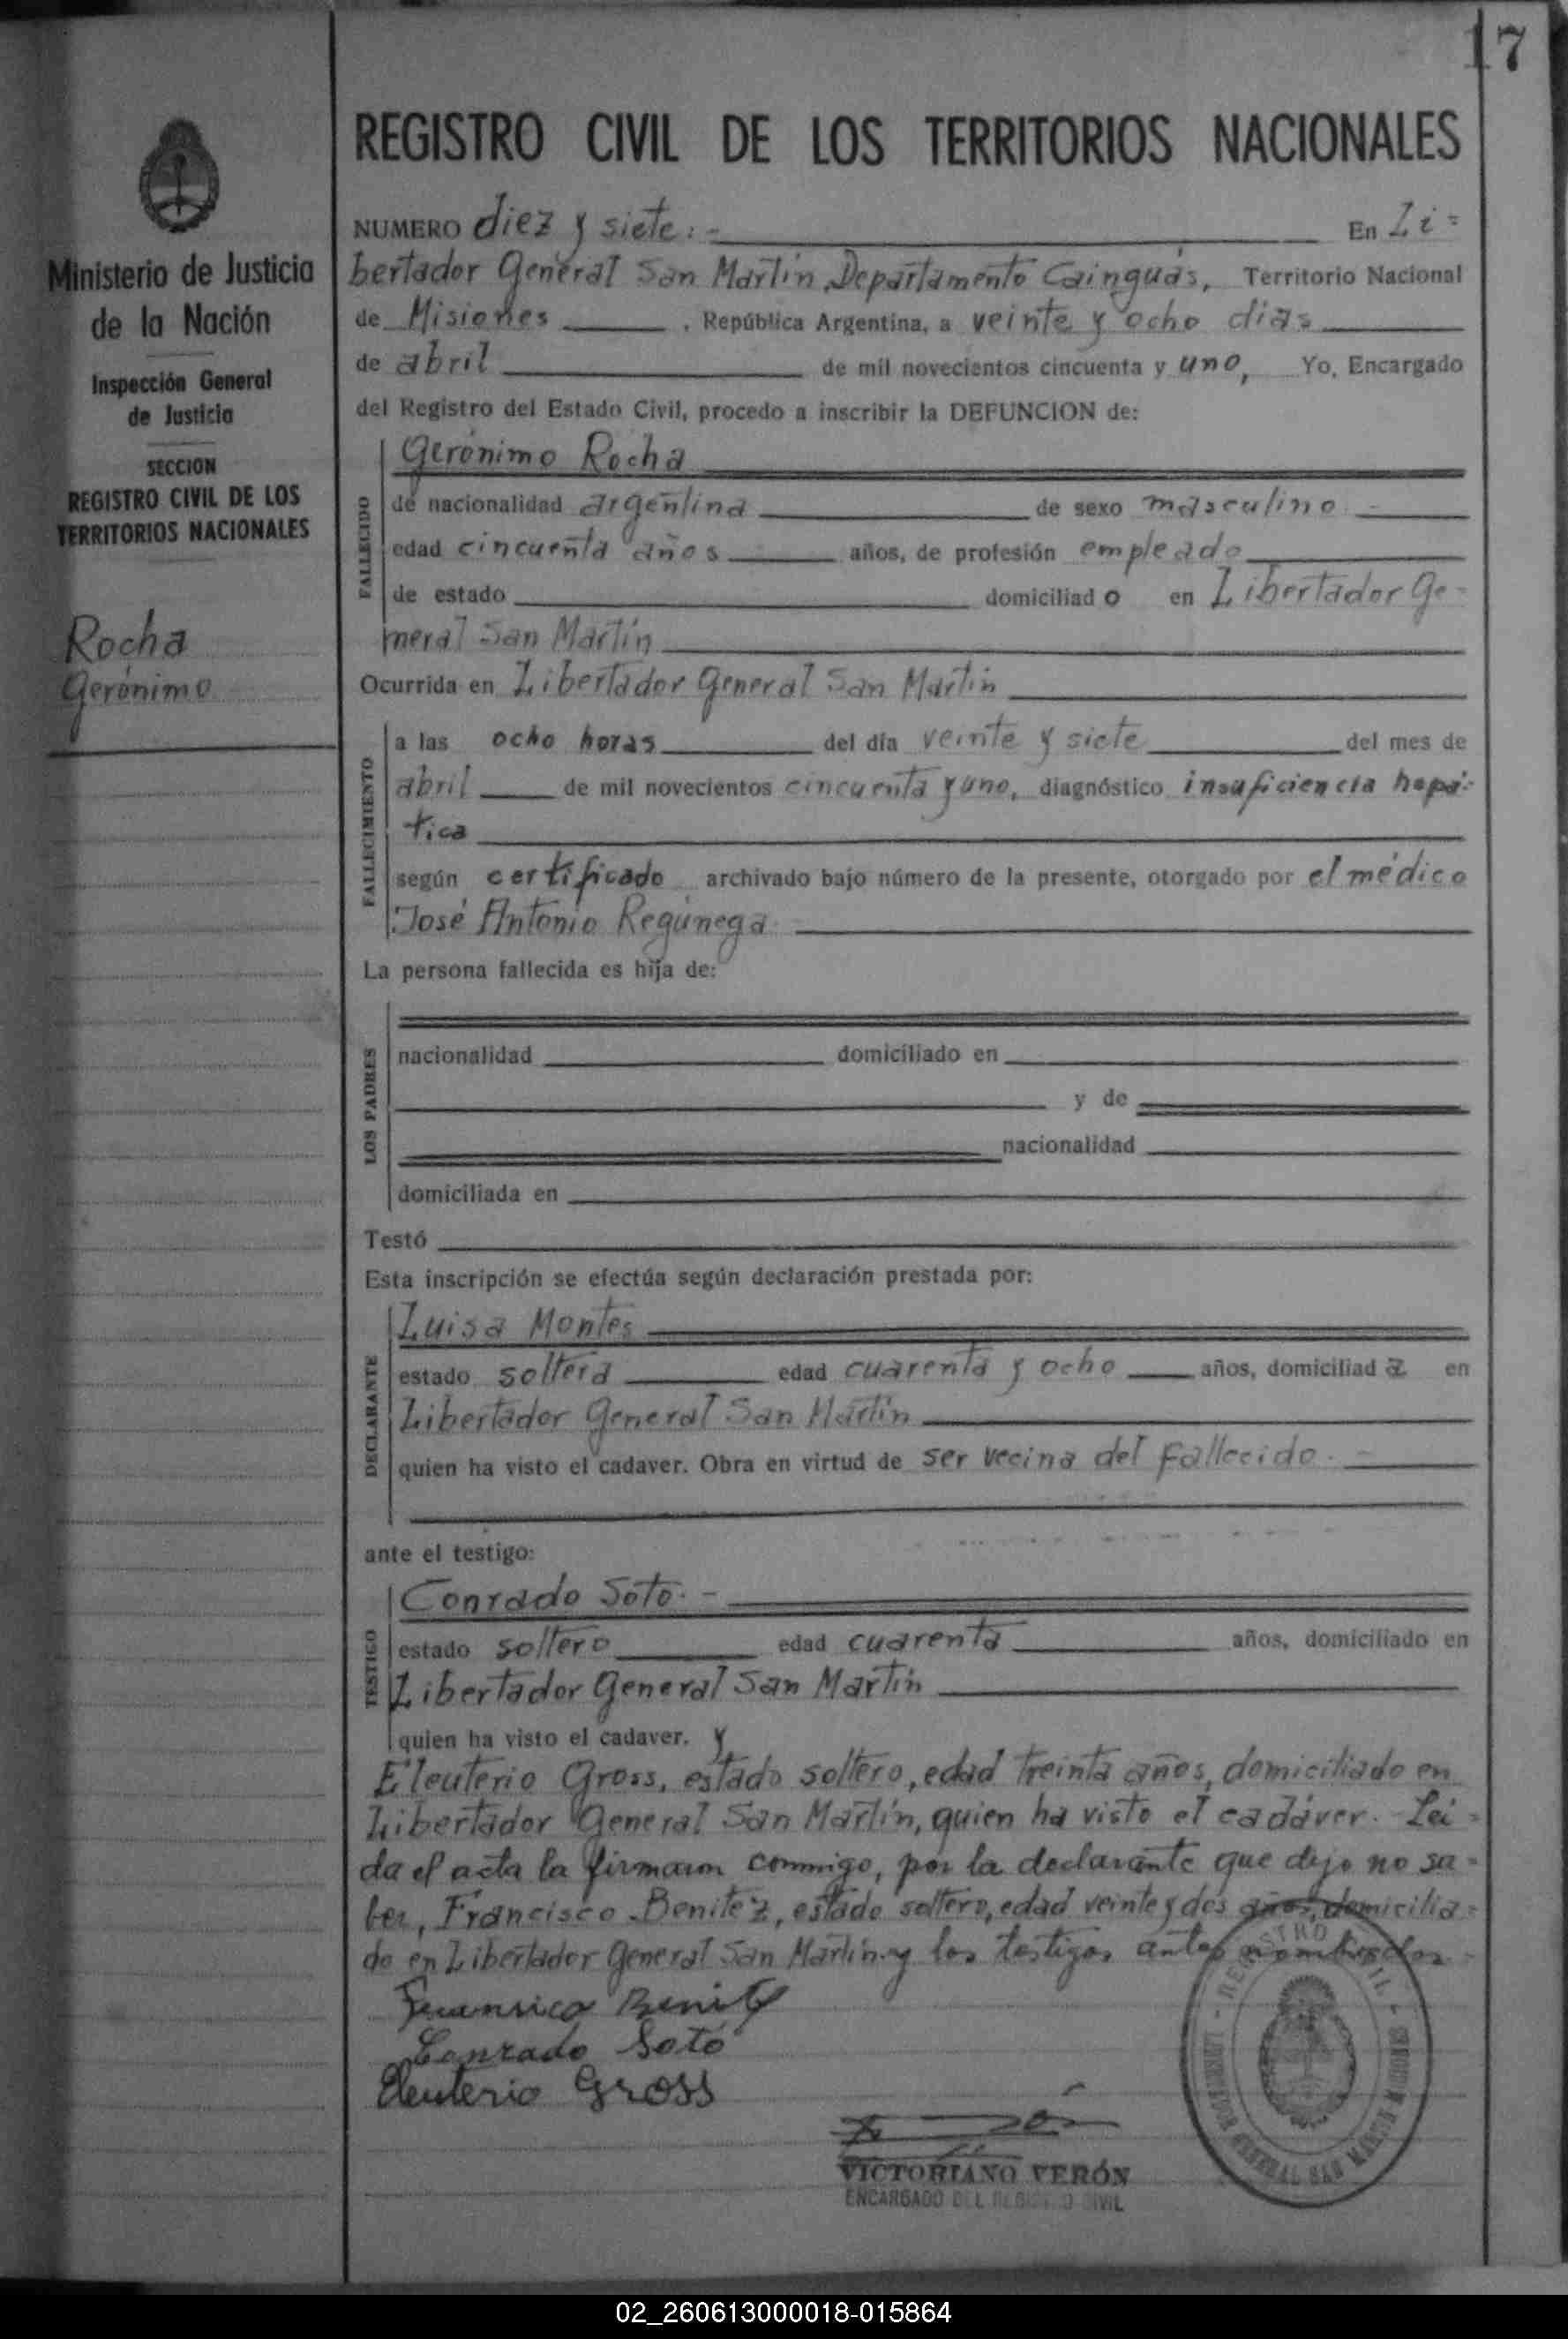 17
REGISTRO CIVIL DE LOS TERRITORIOS NACIONALES
Ministerio de Justicia
de la Nación
Inspección General
de Justicia
SECCION
REGISTRO CIVIL DE LOS
TERRITORIOS NACIONALES
Rocha
Gerónimo
NUMERO diez y siete:- En Li=
bertador General San Martín, Departamento Cainguás, Territorio Nacional
de Misiones , República Argentina, a veinte y ocho días
de abril de mil novecientos cincuenta y uno, Yo, Encargado
del Registro del Estado Civil, procedo a inscribir la DEFUNCION de:
FALLECIDO
Gerónimo Rocha
de nacionalidad argentina de sexo masculino -
edad cincuenta años años, de profesión empleado
de estado domiciliad o en Libertador Ge-
neral San Martín
Ocurrida en Libertador General San Martín
FALLECIMIENTO
a las ocho horas del día veinte y siete del mes de
abril de mil novecientos cincuenta y uno, diagnóstico insuficiencia hepá-
tica
según certificado archivado bajo número de la presente, otorgado por el médico
José Antonio Regúnega
La persona fallecida es hija de:
LOS PADRES
nacionalidad domiciliado en
y de
nacionalidad
domiciliada en
Testó
Esta inscripción se efectúa según declaración prestada por:
DECLARANTE
Luisa Montes
estado soltera edad cuarenta y ocho años, domiciliad a en
Libertador General San Martín
quien ha visto el cadaver. Obra en virtud de ser vecina del fallecido. -
ante el testigo:
TESTIGO
Conrado Soto. -
estado soltero edad cuarenta años, domiciliado en
Libertador General San Martín
quien ha visto el cadaver. y
Eleuterio Gross, estado soltero, edad treinta años, domiciliado en
Libertador General San Martín, quien ha visto el cadáver. Leí=
da el acta la firmaron conmigo, por la declarante que dijo no sa=
ber, Francisco Benitez, estado soltero, edad veinte y dos años, domicilia=
do en Libertador General San Martín y los testigos antes nombrados
Conrado Soto
Eleuterio Gross
VICTORIANO VERÓN
ENCARGADO DEL REGISTRO CIVIL
REGISTRO CIVIL - LIBERTADOR GENERAL SAN MARTIN
02_260613000018-015864